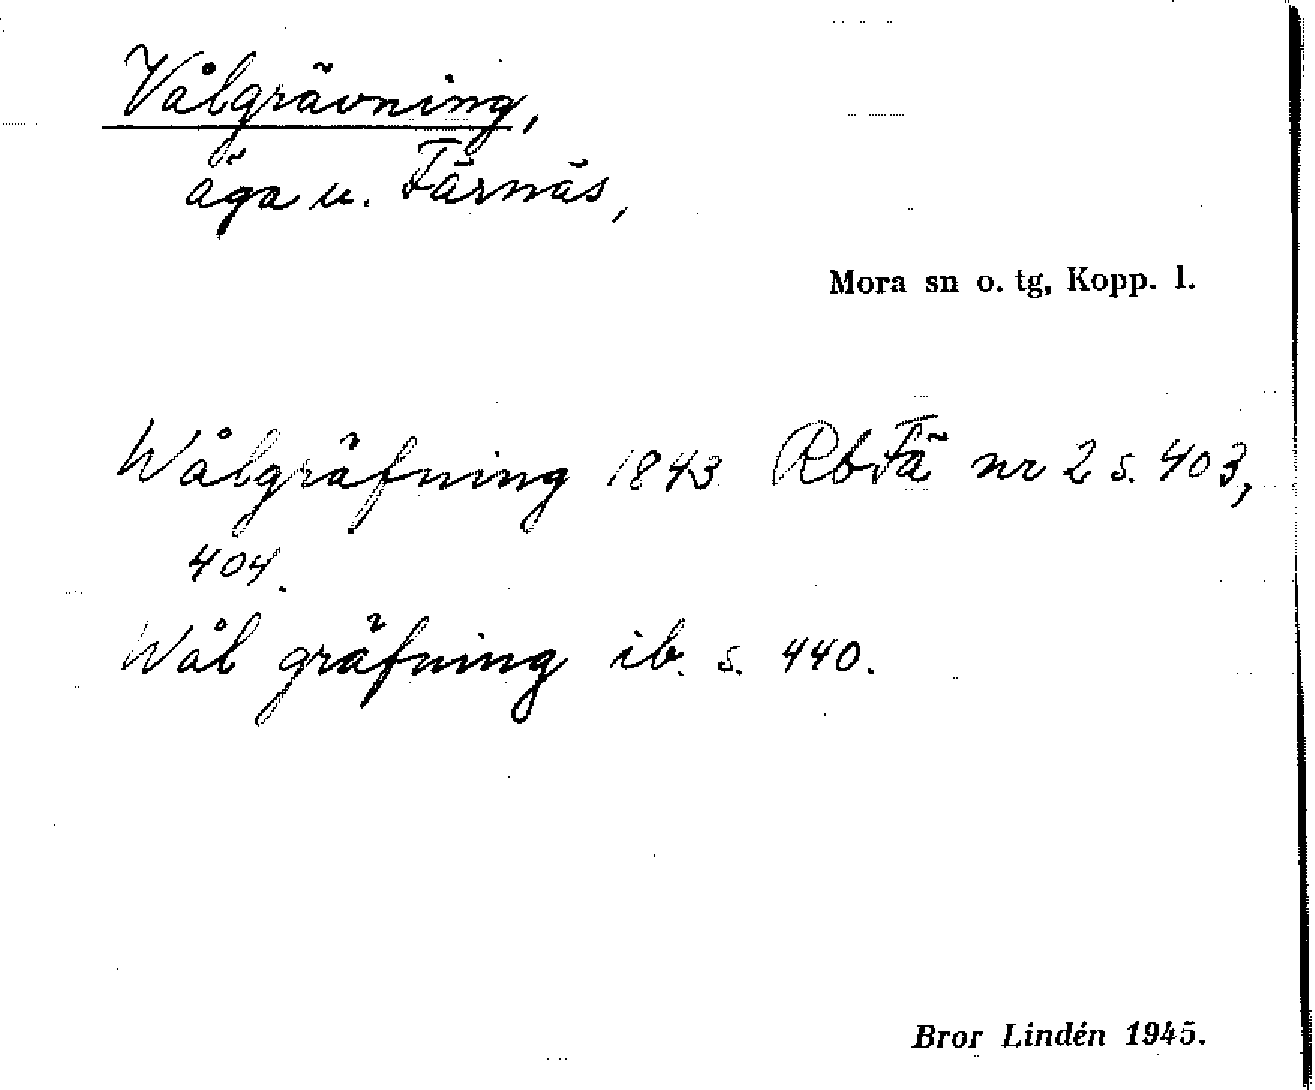 Vålgrävning,
äga u. Färnäs,
Mora sn o. tg, Kopp. l.
Wålgräfning 1843 RbFä nr 2 s. 403,
404.
Wål gräfning ib. s. 440.
Bror Lindén 1945.